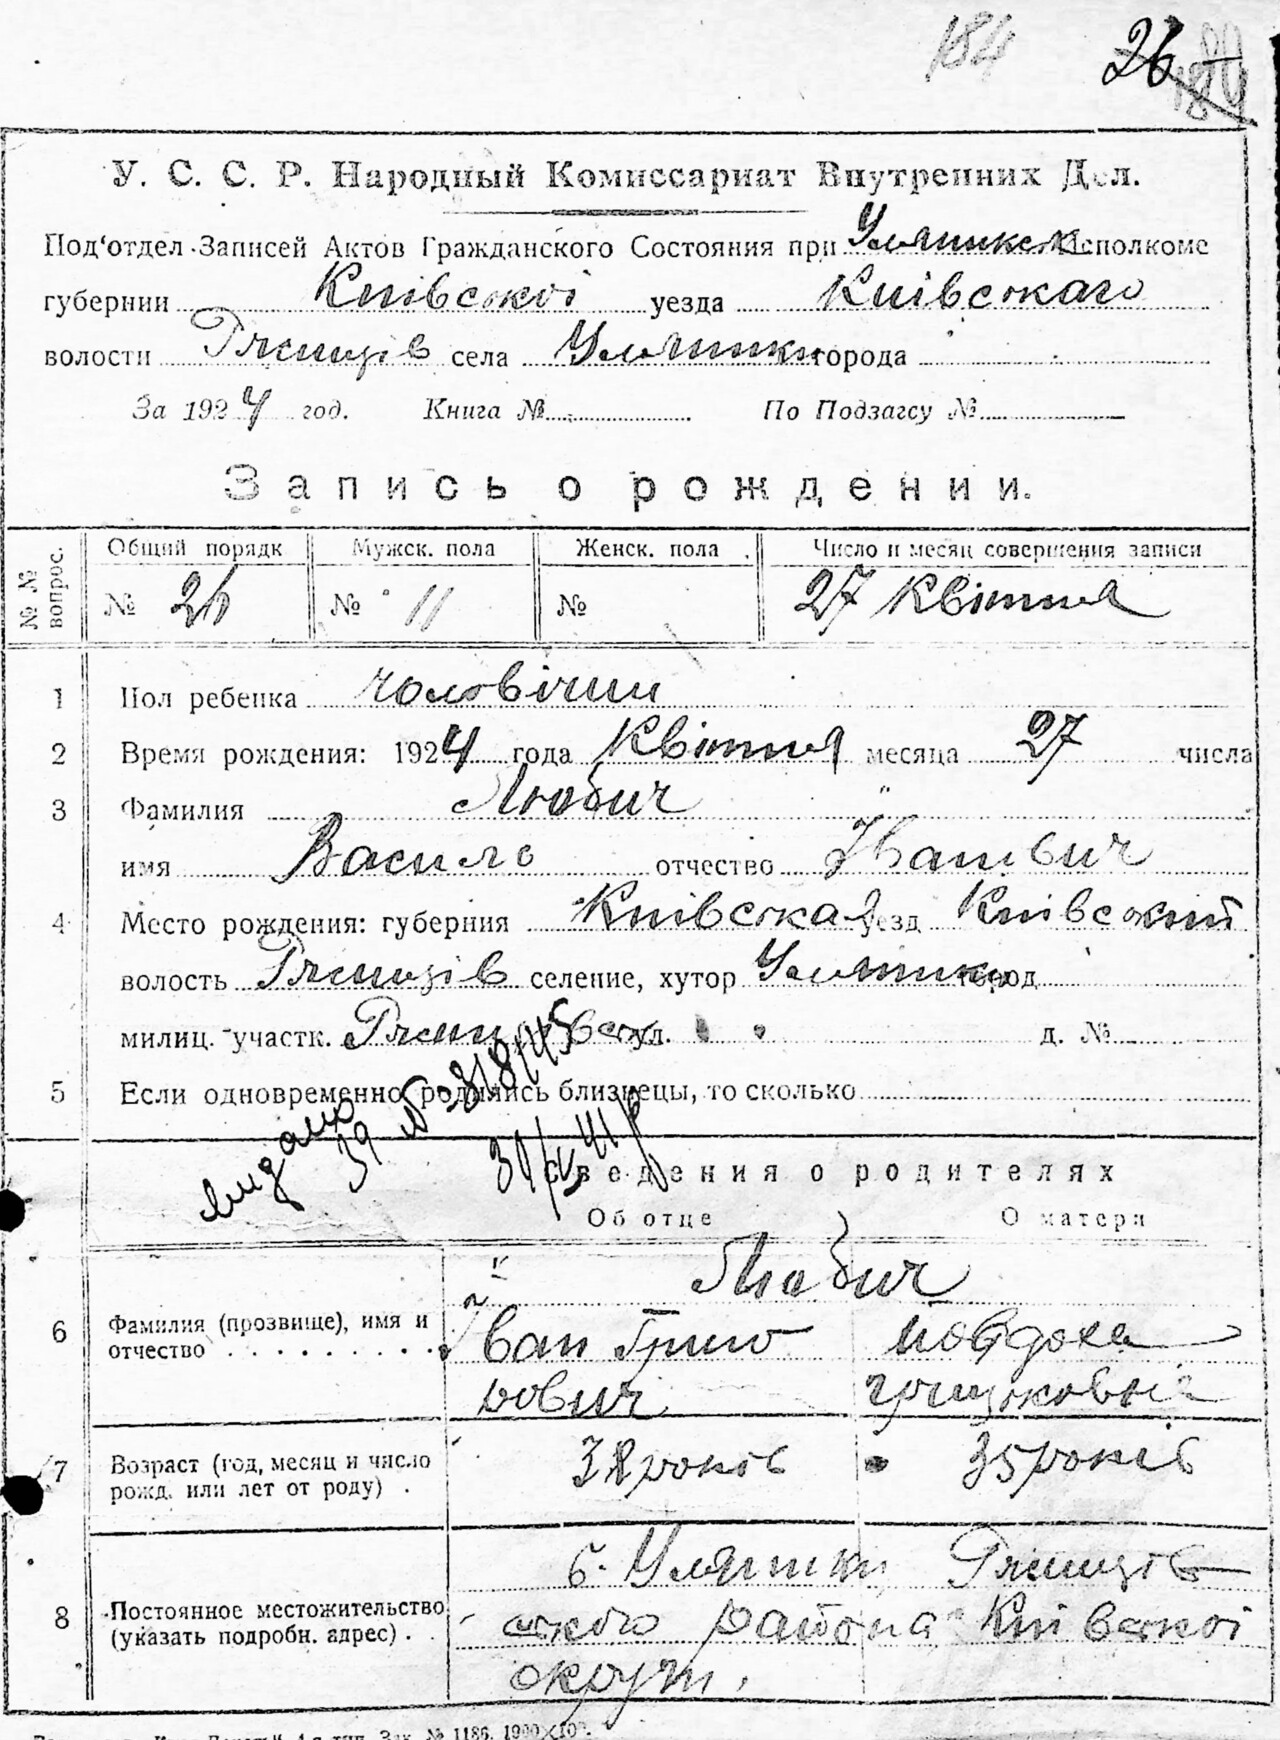 184 26
У. С. С. Р. Народный Комиссариат Внутренних Дел.
Под'отдел Записей Актов Гражданского Состояния при Исполкоме
губернии Київської уезда Київскаго
волости Ржищів села Уляники города
За 1924 год. Книга № По Подзагсу №
Запись о рождении.
№№ вопрос. Общий порядк Мужск. пола Женск. пола Число и месяц совершения записи
№ 26 № 11 № 27 Квітня
1 Пол ребенка чоловічий
2 Время рождения: 1924 года Квітня месяца 27 числа
3 Фамилия Любич
имя Василь отчество Іванович
4 Место рождения: губерния Київская уезд Київский
волость Ржищів селение, хутор Уляники город
милиц. участк. ул. д. №
5 Если одновременно родились близнецы, то сколько
видано
Сведения о родителях
Об отце О матери
Любич
6 Фамилия (прозвище), имя и Іван Григо Мовдоха
отчество рович
7 Возраст (год, месяц и число 38 років 35 років
рожд. или лет от роду) .
с. Уляники Ржищів
8 Постоянное местожительство ского району Київскої
(указать подробн. адрес) . . округи.
№ 1186. 1900×10